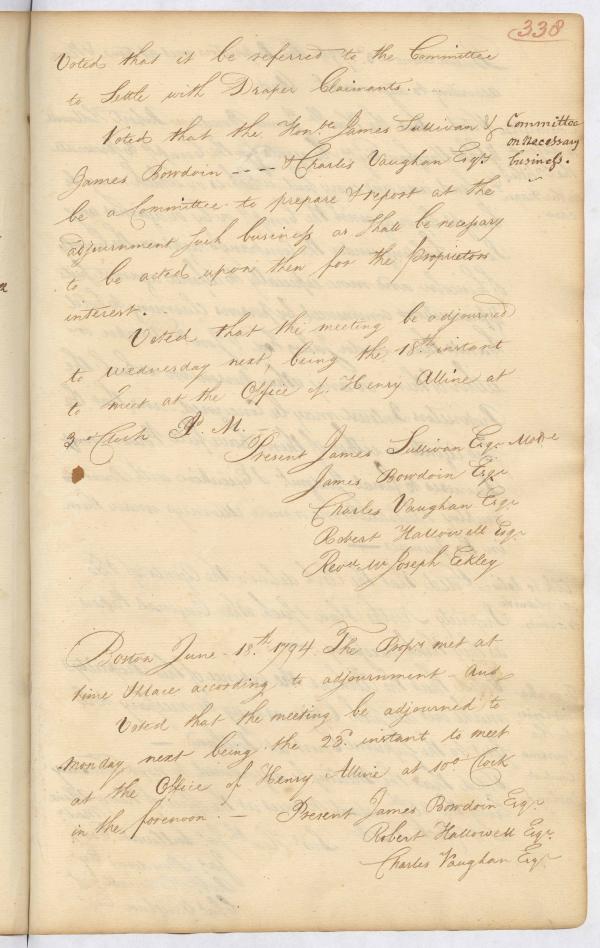 338
Voted that it be referred to the Committee
to Settle with Draper Claimants.
Voted that the Honble James Sullivan &
Committee
on Necessary
business.
James Bowdoin ---- & Charles Vaughan Esqrs
be a Committee to prepare & report at the
adjournment such business as shall be necessary
to be acted upon then for the Proprietors
interest.
Voted that the meeting be adjourned
to Wednesday next, being the 18th instant
to meet at the Office of Henry Alline at
3 o'Clock P. M. —
Present James Sullivan Esqr
James Bowdoin Esqr
Charles Vaughan Esqr
Robert Hallowell Esqr
Revd Mr Joseph Eckley
Boston June 18th 1794. The Proprs met at
time & place according to adjournment - And
Voted that the meeting be adjourned to
monday next being the 23d. instant to meet
at the Office of Henry Alline at 10 o'Clock
in the forenoon. — Present James Bowdoin Esqr
Robert Hallowell Esqr.
Charles Vaughan Esqr